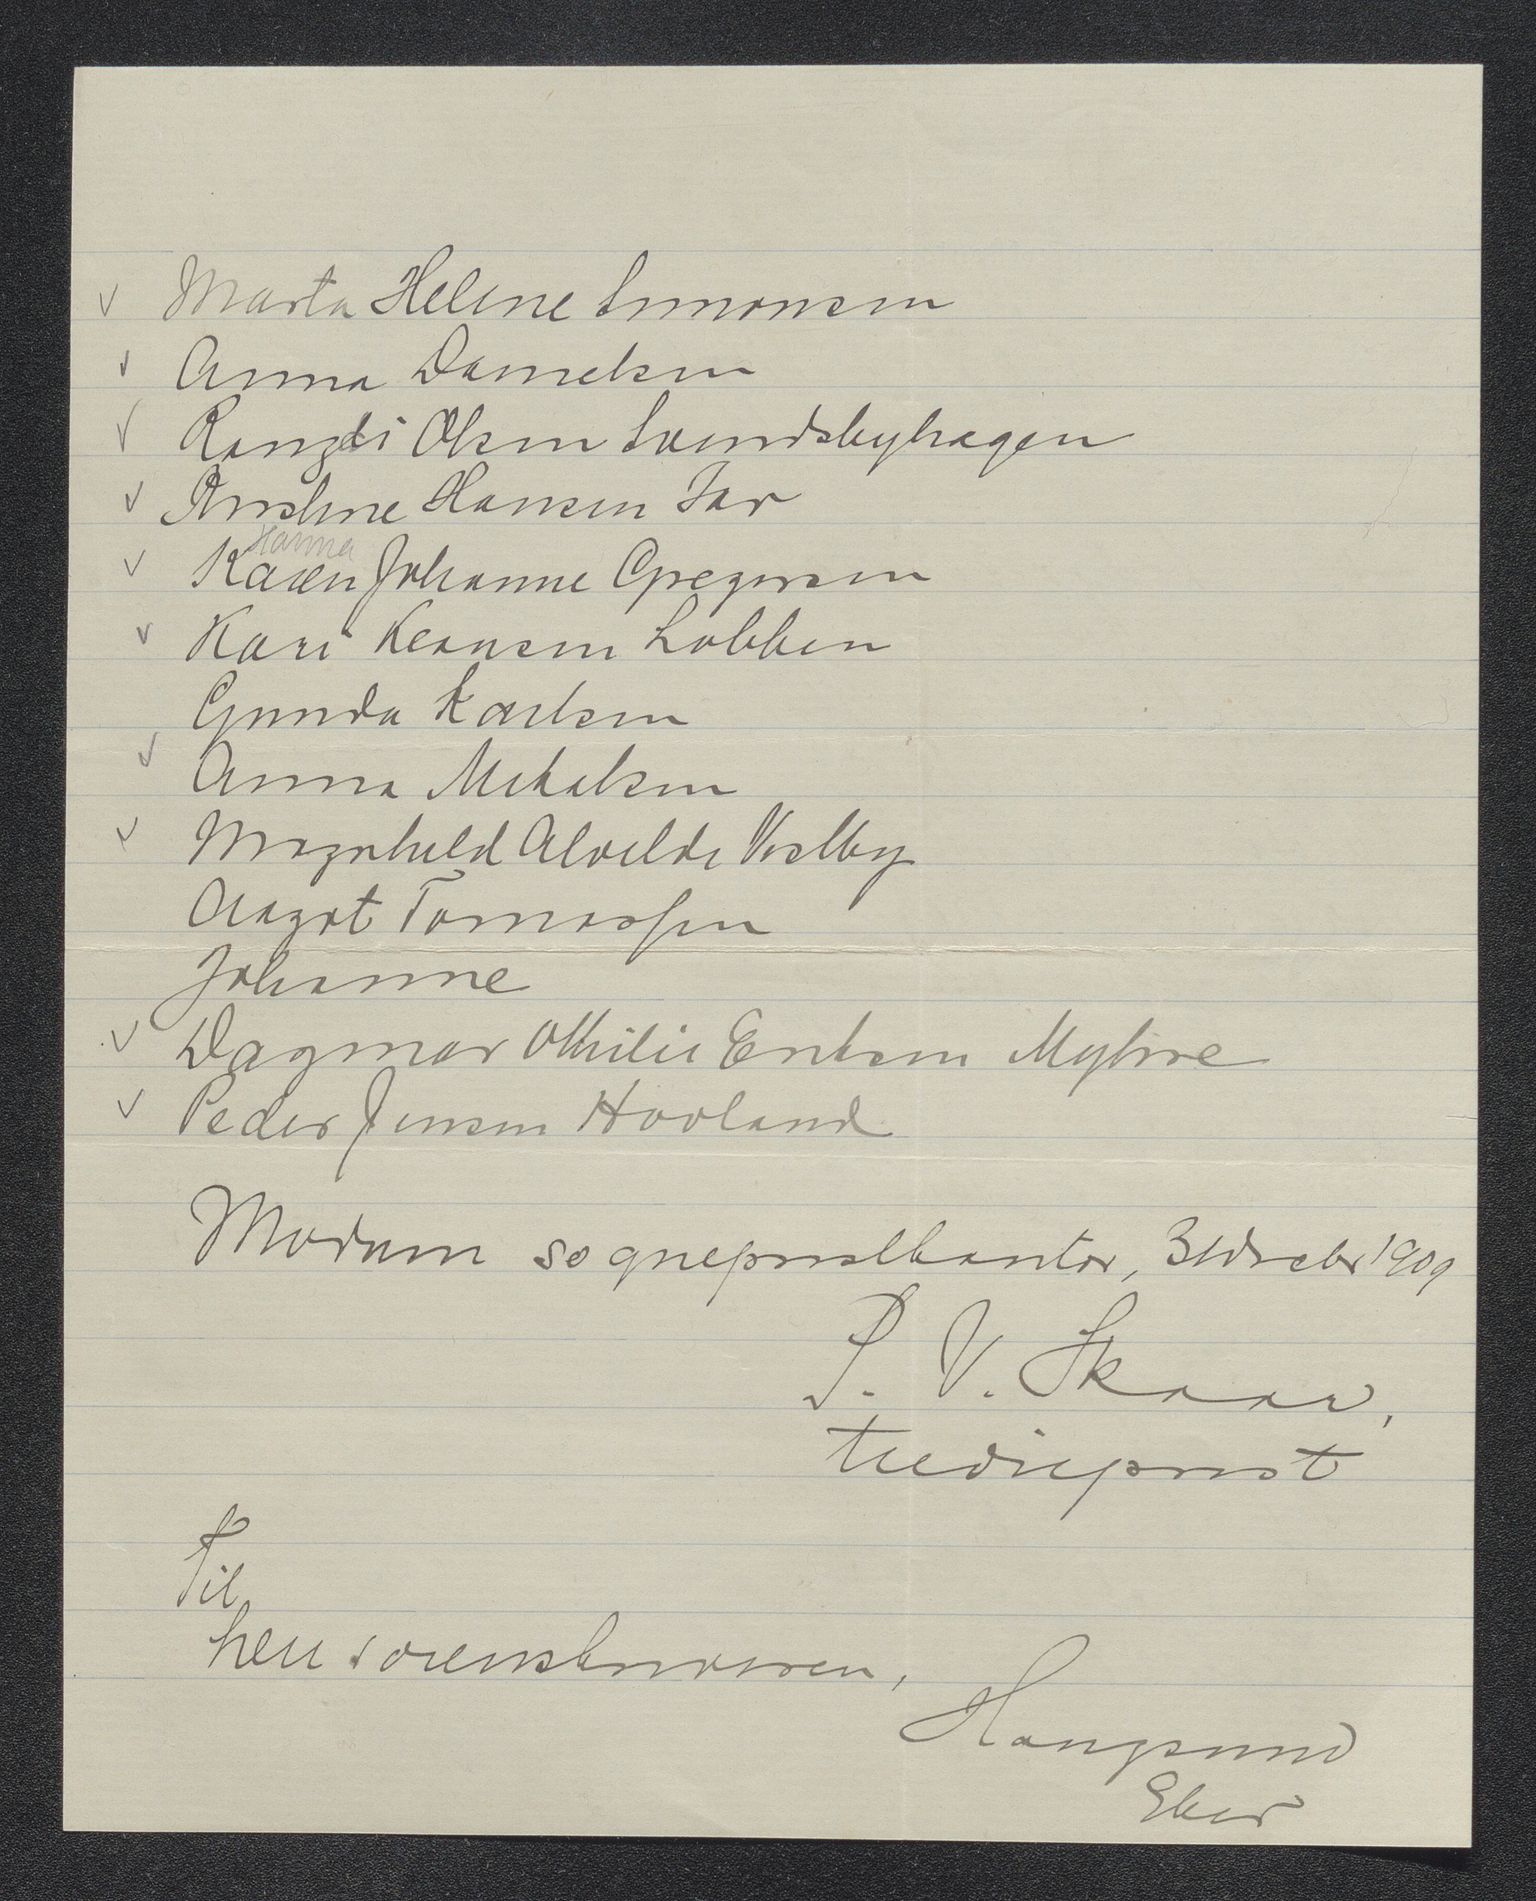 Marta Heline Simonsen
Anna Danielsen
Rangdi Olsen Svendsbyhagen
Kristine Hansen Jar
Hanna
Karen Johanne Gregersen
Kari Hansen Lobben
Gunda Karlsen
Anna Mikalsen
Magnhild Alvilde Vestby
Aagot Tomassen
Johanne
Dagmar Othilie Eriksen Myhre
Peder Jensen Hovland
Modum sogneprestkontor, 31 1909
P. V. Skaar,
stedieprest
Til
herr sorenskriveren,
Haugsund
Eker